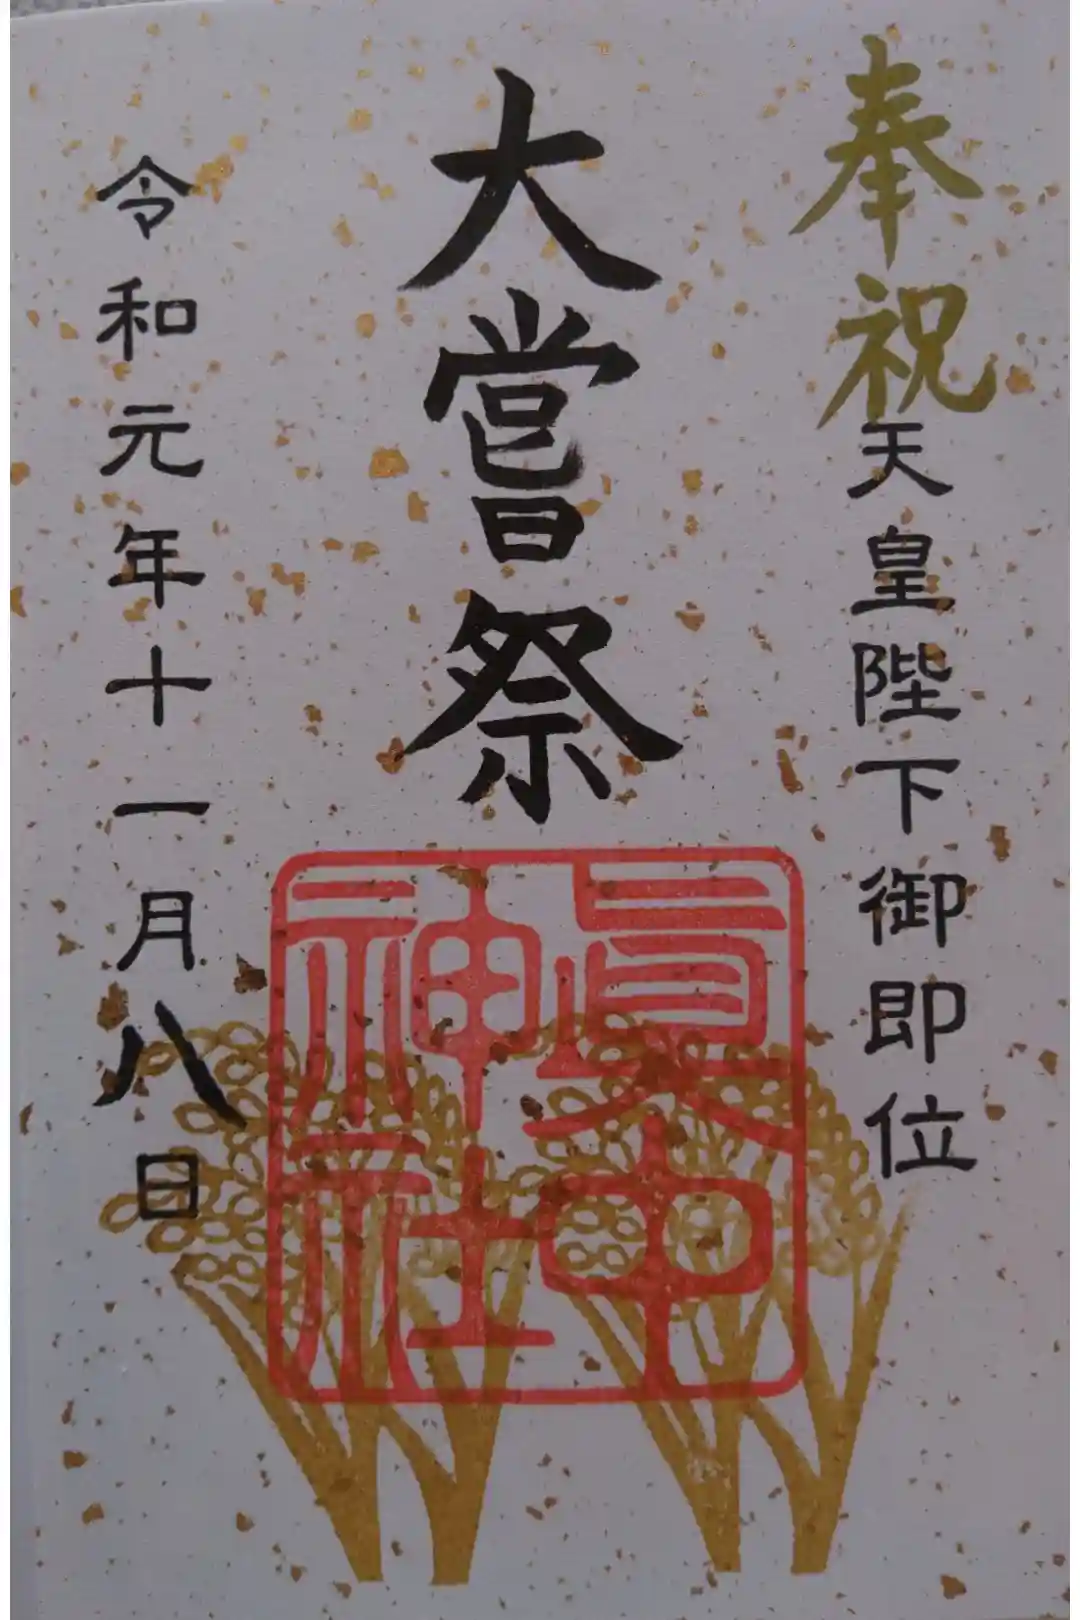 奉祝天皇陛下御即位
大嘗祭
令和元年十一月八日
夏中
神社